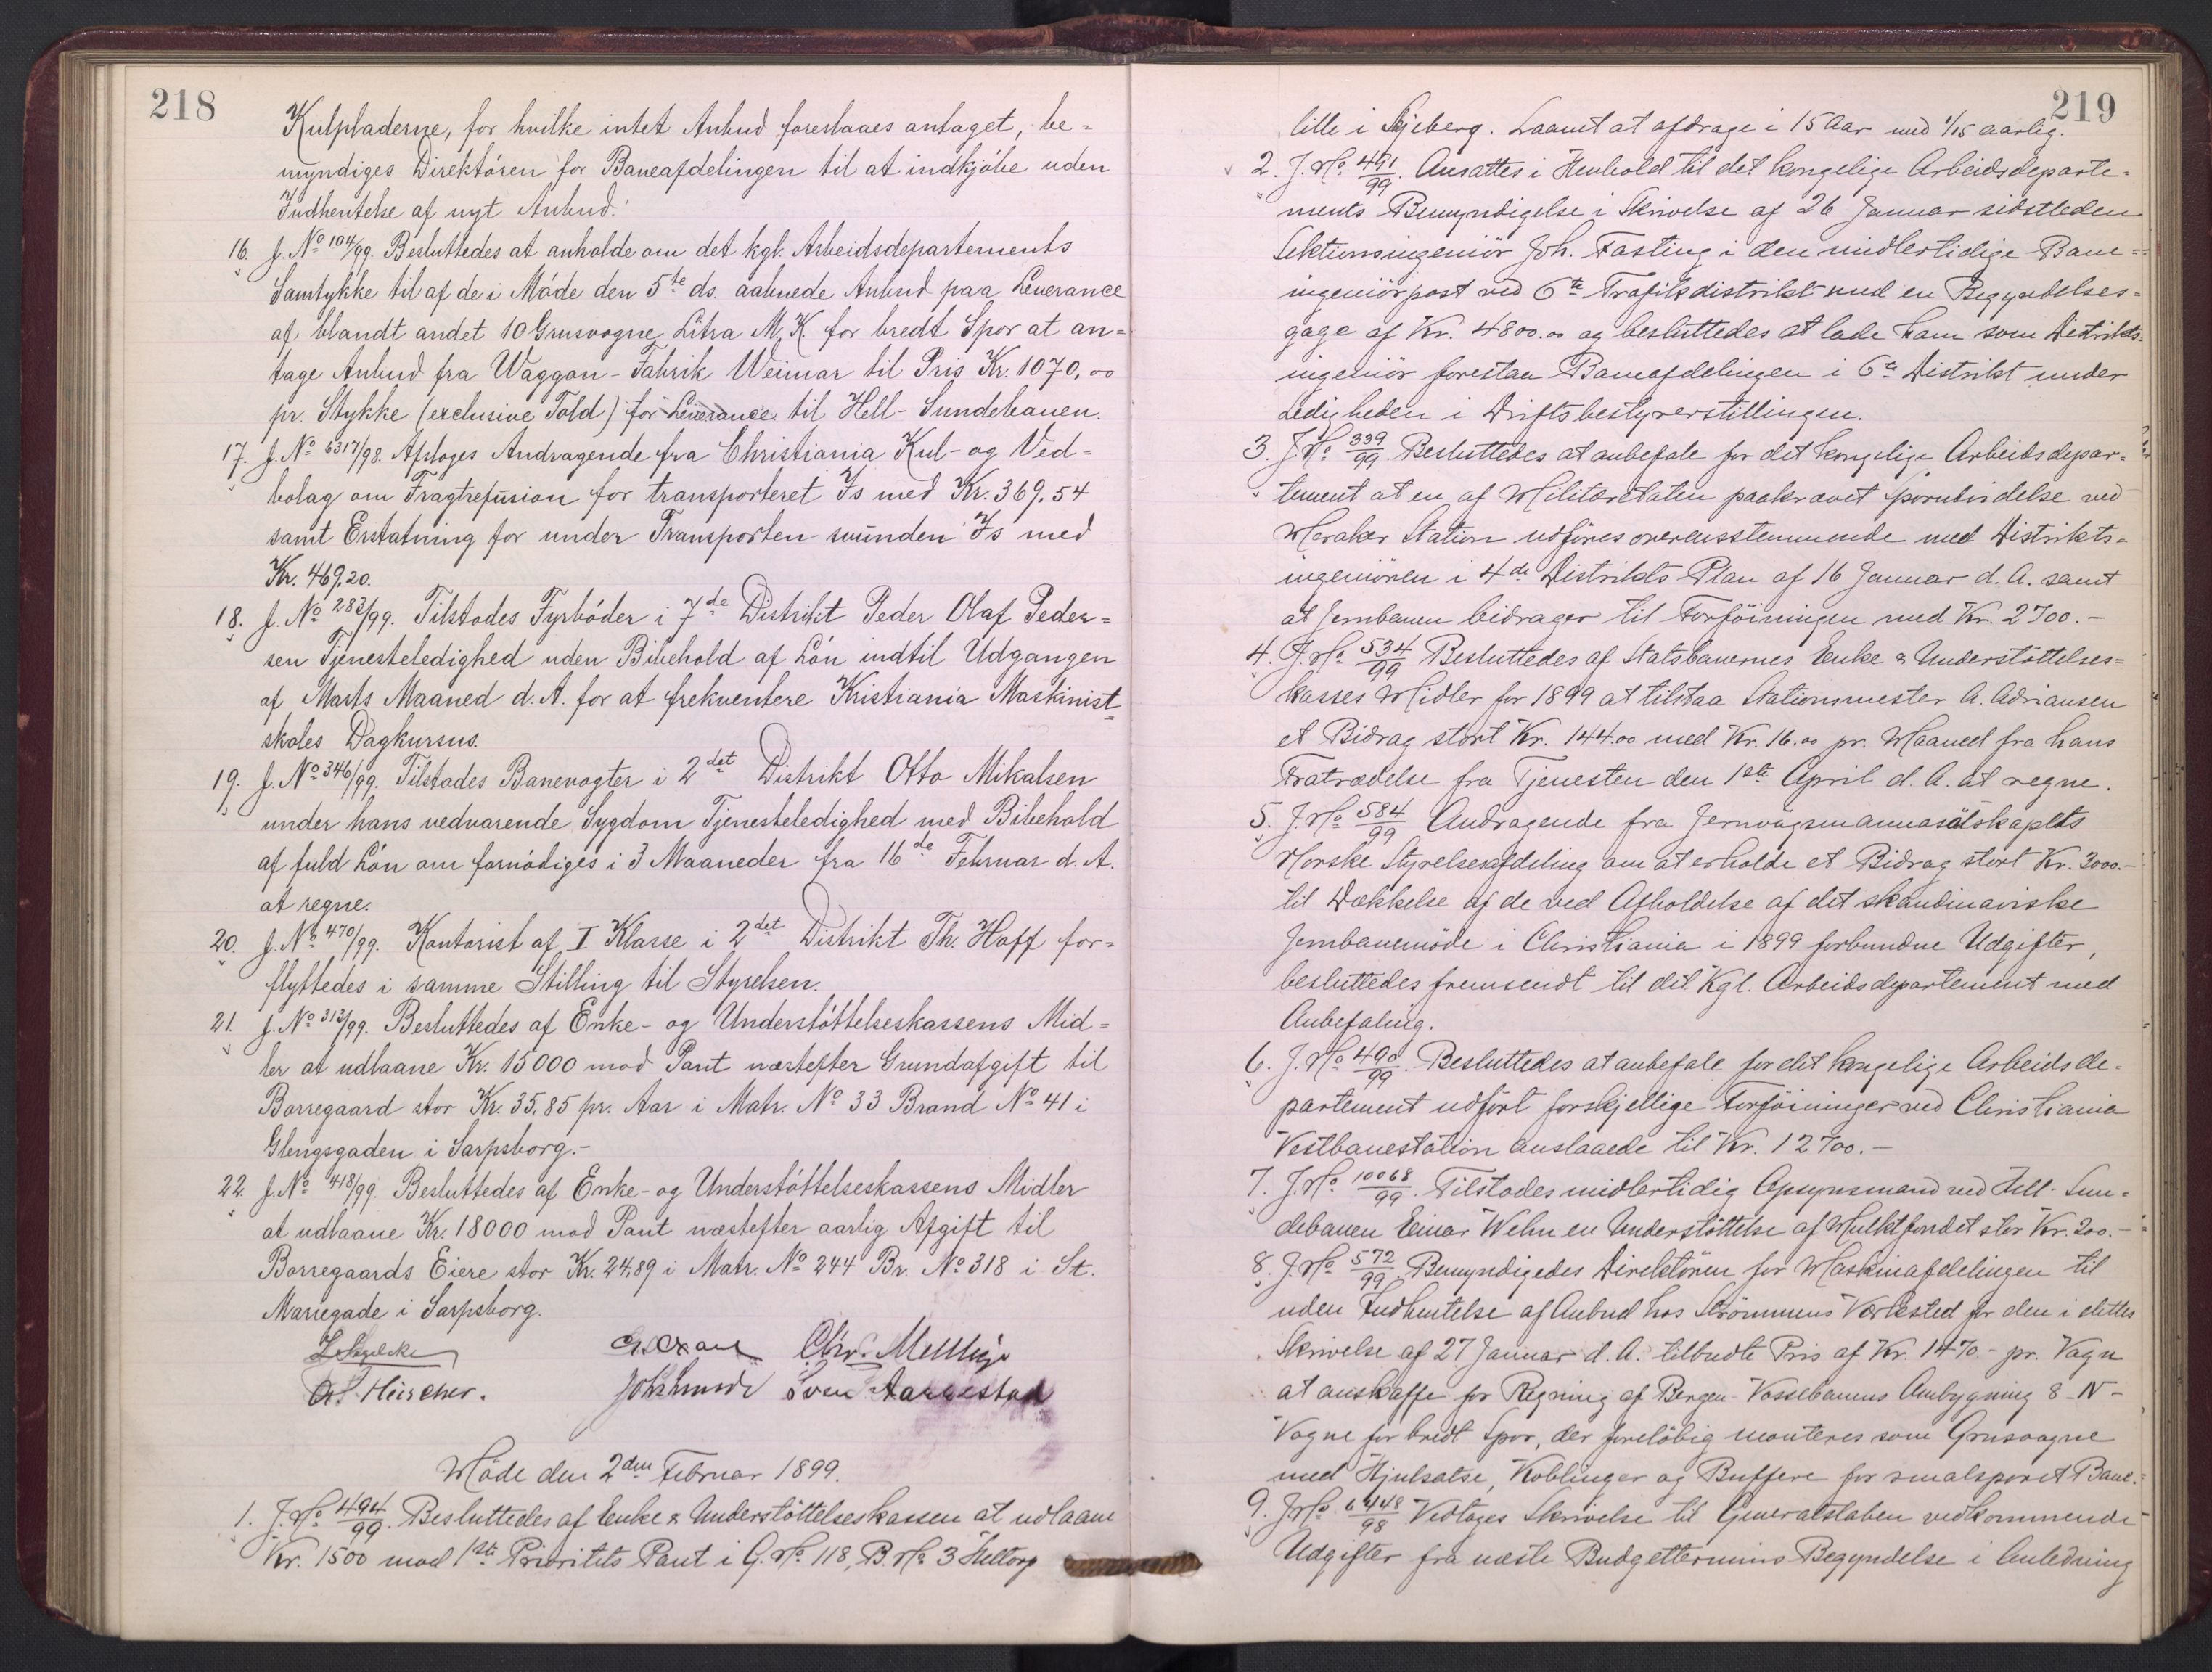 218
Kulpladerne, for hvilke intet Anbud foreslaaes antaget, be=
myndiges Direktøren for Baneafdelingen til at indkjøbe uden
Indhentelse af nyt Anbud.
16. J. No 104/99. Besluttedes at anholde om det kgl. Arbeidsdepartements
Samtykke til af de i Møde den 5te ds. aabnede Anbud paa Leverance
af blandt andet 10 Grusvogne Litra M.K for bredt Spor at an=
tage Anbud fra Waggon-Fabrik Weimar til Pris Kr. 1070,00
pr. Stykke (exclusive Told) for Leverance til Hell-Sundebanen.
17. J. No 6317/98. Afsloges Andragende fra Christiania Kul- og Ved=
bolag om Fragtrefusion for transporteret Is med Kr. 369.54
samt Erstatning for under Transporten svunden Is med
Kr. 469.20.
18. J. No 283/99. Tilstodes Fyrbøder i 7de Distrikt Peder Olaf Peder=
sen Tjenesteledighed uden Bibehold af Løn indtil Udgangen
af Marts Maaned d. A. for at frekventere Kristiania Maskinist=
skoles Dagkursus.
19. J. No 346/99. Tilstodes Banevogter i 2det Distrikt Otto Mikalsen
under hans vedvarende Sygdom Tjenesteledighed med Bibehold
af fuld Løn om fornødiges i 3 Maaneder fra 16de Februar d. A.
at regne.
20. J. No 470/99. Kontorist af I Klasse i 2det Distrikt Th. Hoff for=
flyttedes i samme Stilling til Styrelsen.
21. J. No 313/99. Besluttedes af Enke- og Understøttelseskassens Mid=
ler at udlaane Kr. 15000 mod Pant næstefter Grundafgift til
Borregaard stor Kr. 35.85 pr. Aar i Matr. No 33 Brand No 41 i
Glengsgaden i Sarpsborg.-
22. J. No 418/99. Besluttedes af Enke- og Understøttelseskassens Midler
at udlaane Kr. 18000 mod Pant næstefter aarlig Afgift til
Borregaards Eiere stor Kr. 24.89 i Matr. No 244 Br. No 318 i St.
Mariegade i Sarpsborg.
Chr.
Sven Aarrestad
Møde den 2den Februar 1899.
1. J. No 494/99. Besluttedes af Enke & Understøttelseskassen at udlaane
Kr. 1500 mod 1ste Prioritets Pant i G. No 118, B. No 3
219
lille i Skjeberg. Laanet at afdrage i 15 Aar med 1/15 aarlig.
2. J. No 491/99. Ansattes i Henhold til det kongelige Arbeidsdeparte=
ments Bemyndigelse i Skrivelse af 26 Januar sidstleden
Sektionsingeniør Joh. Fasting i den midlertidige Bane=
ingeniørpost ved 6te Trafikdistrikt med en Begyndelses=
gage af Kr. 4800.00 og besluttedes at lade ham som Distrikts=
ingeniør forestaa Baneafdelingen i 6te Distrikt under
Ledigheden i Driftsbestyrerstillingen.
3. J. No 339/99. Besluttedes at anbefale for det kongelige Arbeidsdepar=
tement at en af Militæretaten paakrævet Sporutvidelse ved
Meraker Station udføres overensstemmende med Distrikts=
ingeniøren i 4de Distrikts Plan af 16 Januar d. A. samt
at Jernbanen bidrager til Forføiningen med Kr. 2700.-
4. J. No 534/99 Besluttedes af Statsbanernes Enke & Understøttelses=
kasses Midler for 1899 at tilstaa Stationsmester A. Adriansen
et Bidrag stort Kr. 144.00 med Kr. 16.00 pr. Maaned fra hans
Fratrædelse fra Tjenesten den 1ste April d. A. at regne.
5. J. No 584/99 Andragende fra Jernvägsmannasälskapets
Norske Styrelsesafdeling om at erholde et Bidrag stort Kr. 3000.-
til Dækkelse af de ved Afholdelse af det skandinaviske
Jernbanemøde i Christiania i 1899 forbundne Udgifter,
besluttedes fremsendt til det Kgl. Arbeidsdepartement med
Anbefaling.
6. J. No 490/99. Besluttedes at anbefale for det kongelige Arbeidsde-
partement udført forskjellige Forføininger ved Christiania
Vestbanestation anslaaede til Kr. 12700.-
7. J. No 10068/99. Tilstodes midlertidig Opsynsmand ved Hell-Sun=
debanen Einar Wehn en Understøttelse af Mulktfondet stor Kr. 200.-
8. J. No 572/99. Bemyndigedes Direktøren for Maskinafdelingen til
uden Indhentelse af Anbud hos Strømmens Værksted for den i dettes
Skrivelse af 27 Januar d. A. tilbudte Pris af Kr. 1470.- pr. Vogn
at anskaffe for Regning af Bergen-Vossebanens Ombygning 8-N-
Vogne for bredt Spor, der foreløbig monteres som Grusvogne
med Hjulsatse, Koblinger og Buffere for smalsporet Bane.
9. J. No 6448/98 Vedtoges Skrivelse til Generalstaben vedkommende
Udgifter fra næste Budgettermins Begyndelse i Anledning